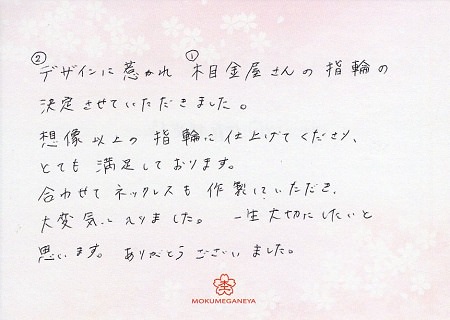 ②デザインに惹かれ ①杢目金屋さんの指輪の
決定させていただきました。
想像以上の指輪に仕上げてくださり、
とても満足しております。
合わせてネックレスも作製していただき、
大変気に入りました。 一生大切にしたいと
思います。ありがとうございました。
MOKUMEGANEYA